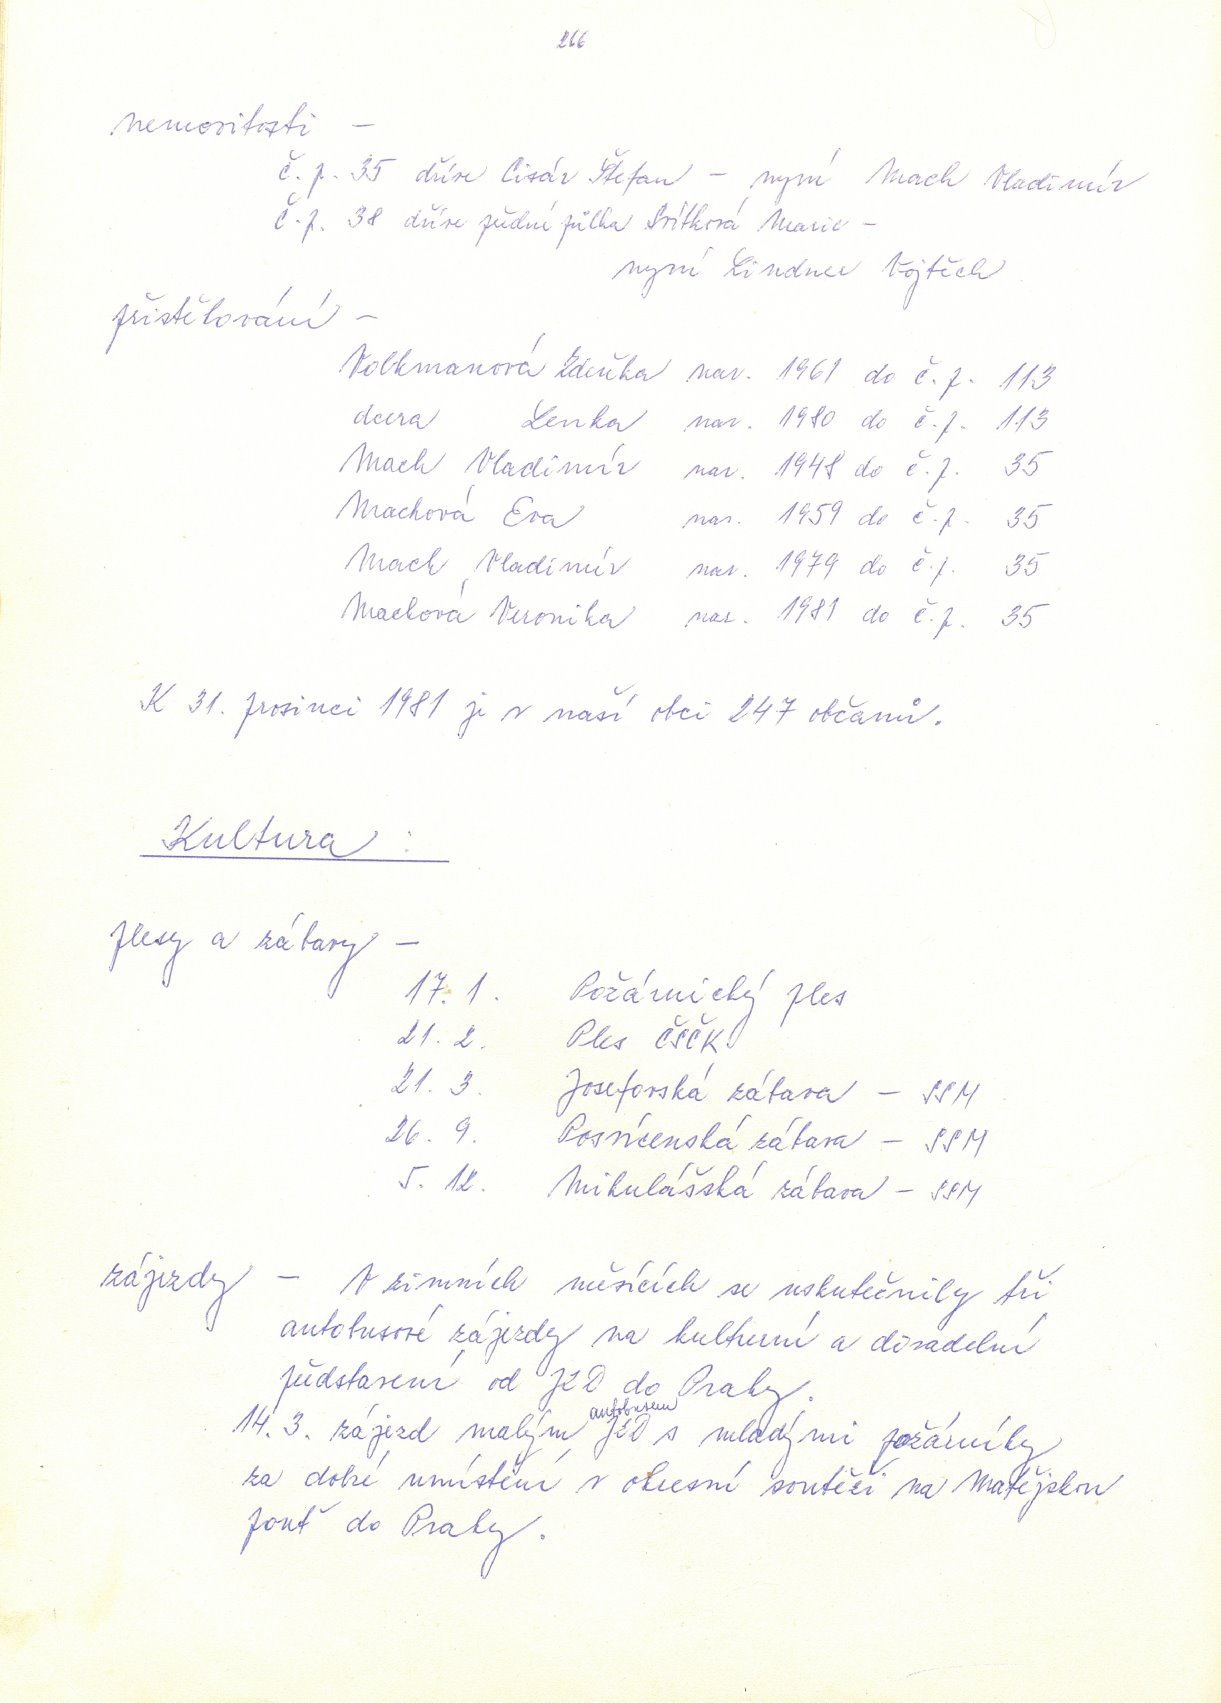 266
nemovitosti —
č. p. 35 dříve Cisár Štefan — nyní Mach Vladimír
č. p. 38 dříve přední půlka Svítková Marie —
nyní Lindner Vojtěch
přistěhování —
Volkmanová Zdeňka nar. 1961 do č. p. 113
dcera Lenka nar. 1980 do č. p. 113
Mach Vladimír nar. 1948 do č. p. 35
Machová Eva nar. 1959 do č. p. 35
Mach Vladimír nar. 1979 do č. p. 35
Machová Veronika nar. 1981 do č. p. 35
K 31. prosinci 1981 je v naší obci 247 občanů.
Kultura :
plesy a zábavy —
17. 1. Požárnický ples
21. 2. Ples ČSČK
21. 3. Josefovská zábava — SSM
26. 9. Posvícenská zábava — SSM
5. 12. Mikulášská zábava — SSM
zájezdy — V zimních měsících se uskutečnily tři
autobusové zájezdy na kulturní a divadelní
představení od JZD do Prahy.
14. 3. zájezd malým autobusem JZD s mladými požárníky
za dobré umístění v okresní soutěži na Matějskou
pouť do Prahy.